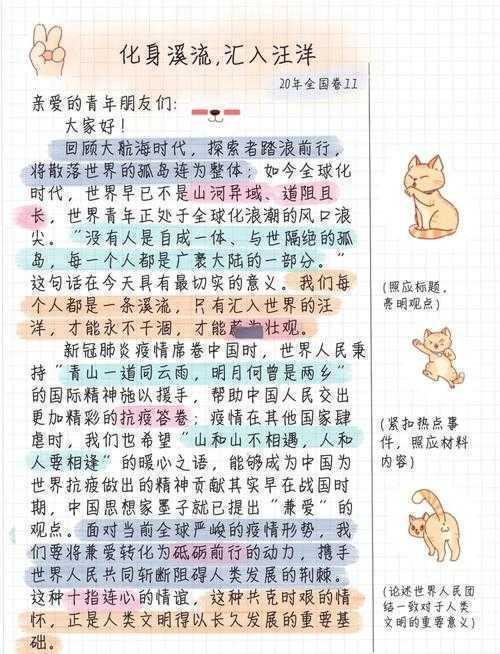 化身溪流,汇入汪洋
20年全国卷II
亲爱的青年朋友们:
大家好!
回顾大航海时代，探索者踏浪前行，
将散落世界的孤岛连为整体；如今全球化
时代，世界早已不是山河异域、道阻且
长，世界青年正处于全球化浪潮的风口浪
尖。“没有人是自成一体、与世隔绝的孤
岛，每一个人都是广袤大陆的一部分。”
这句话在今天具有最切实的意义。我们每
个人都是一条溪流，只有汇入世界的汪
洋，才能永不干涸，才能蔚为壮观。
新冠肺炎疫情席卷中国时，世界人民秉
持“青山一道同云雨，明月何曾是两乡”
的国际精神施以援手，帮助中国人民交出
更加精彩的抗疫答卷；疫情在其他国家肆
虐时，我们也希望“山和山不相遇，人和
人要相逢”的暖心之语，能够成为中国为
世界抗疫做出的精神贡献其实早在战国时
期，中国思想家墨子就已提出“兼爱”的
观点。面对当前全球严峻的疫情形势，我
们要将兼爱转化为砥砺前行的动力，携手
世界人民共同斩断阻碍人类发展的荆棘。
这种十指连心的情谊，这种共克时艰的情
怀，正是人类文明得以长久发展的重要基
础。
(照应标题，
亮明观点)
(紧扣热点事
件，照应材料
内容)
(论述世界人民团
结一致对于人类
文明的重要意义)